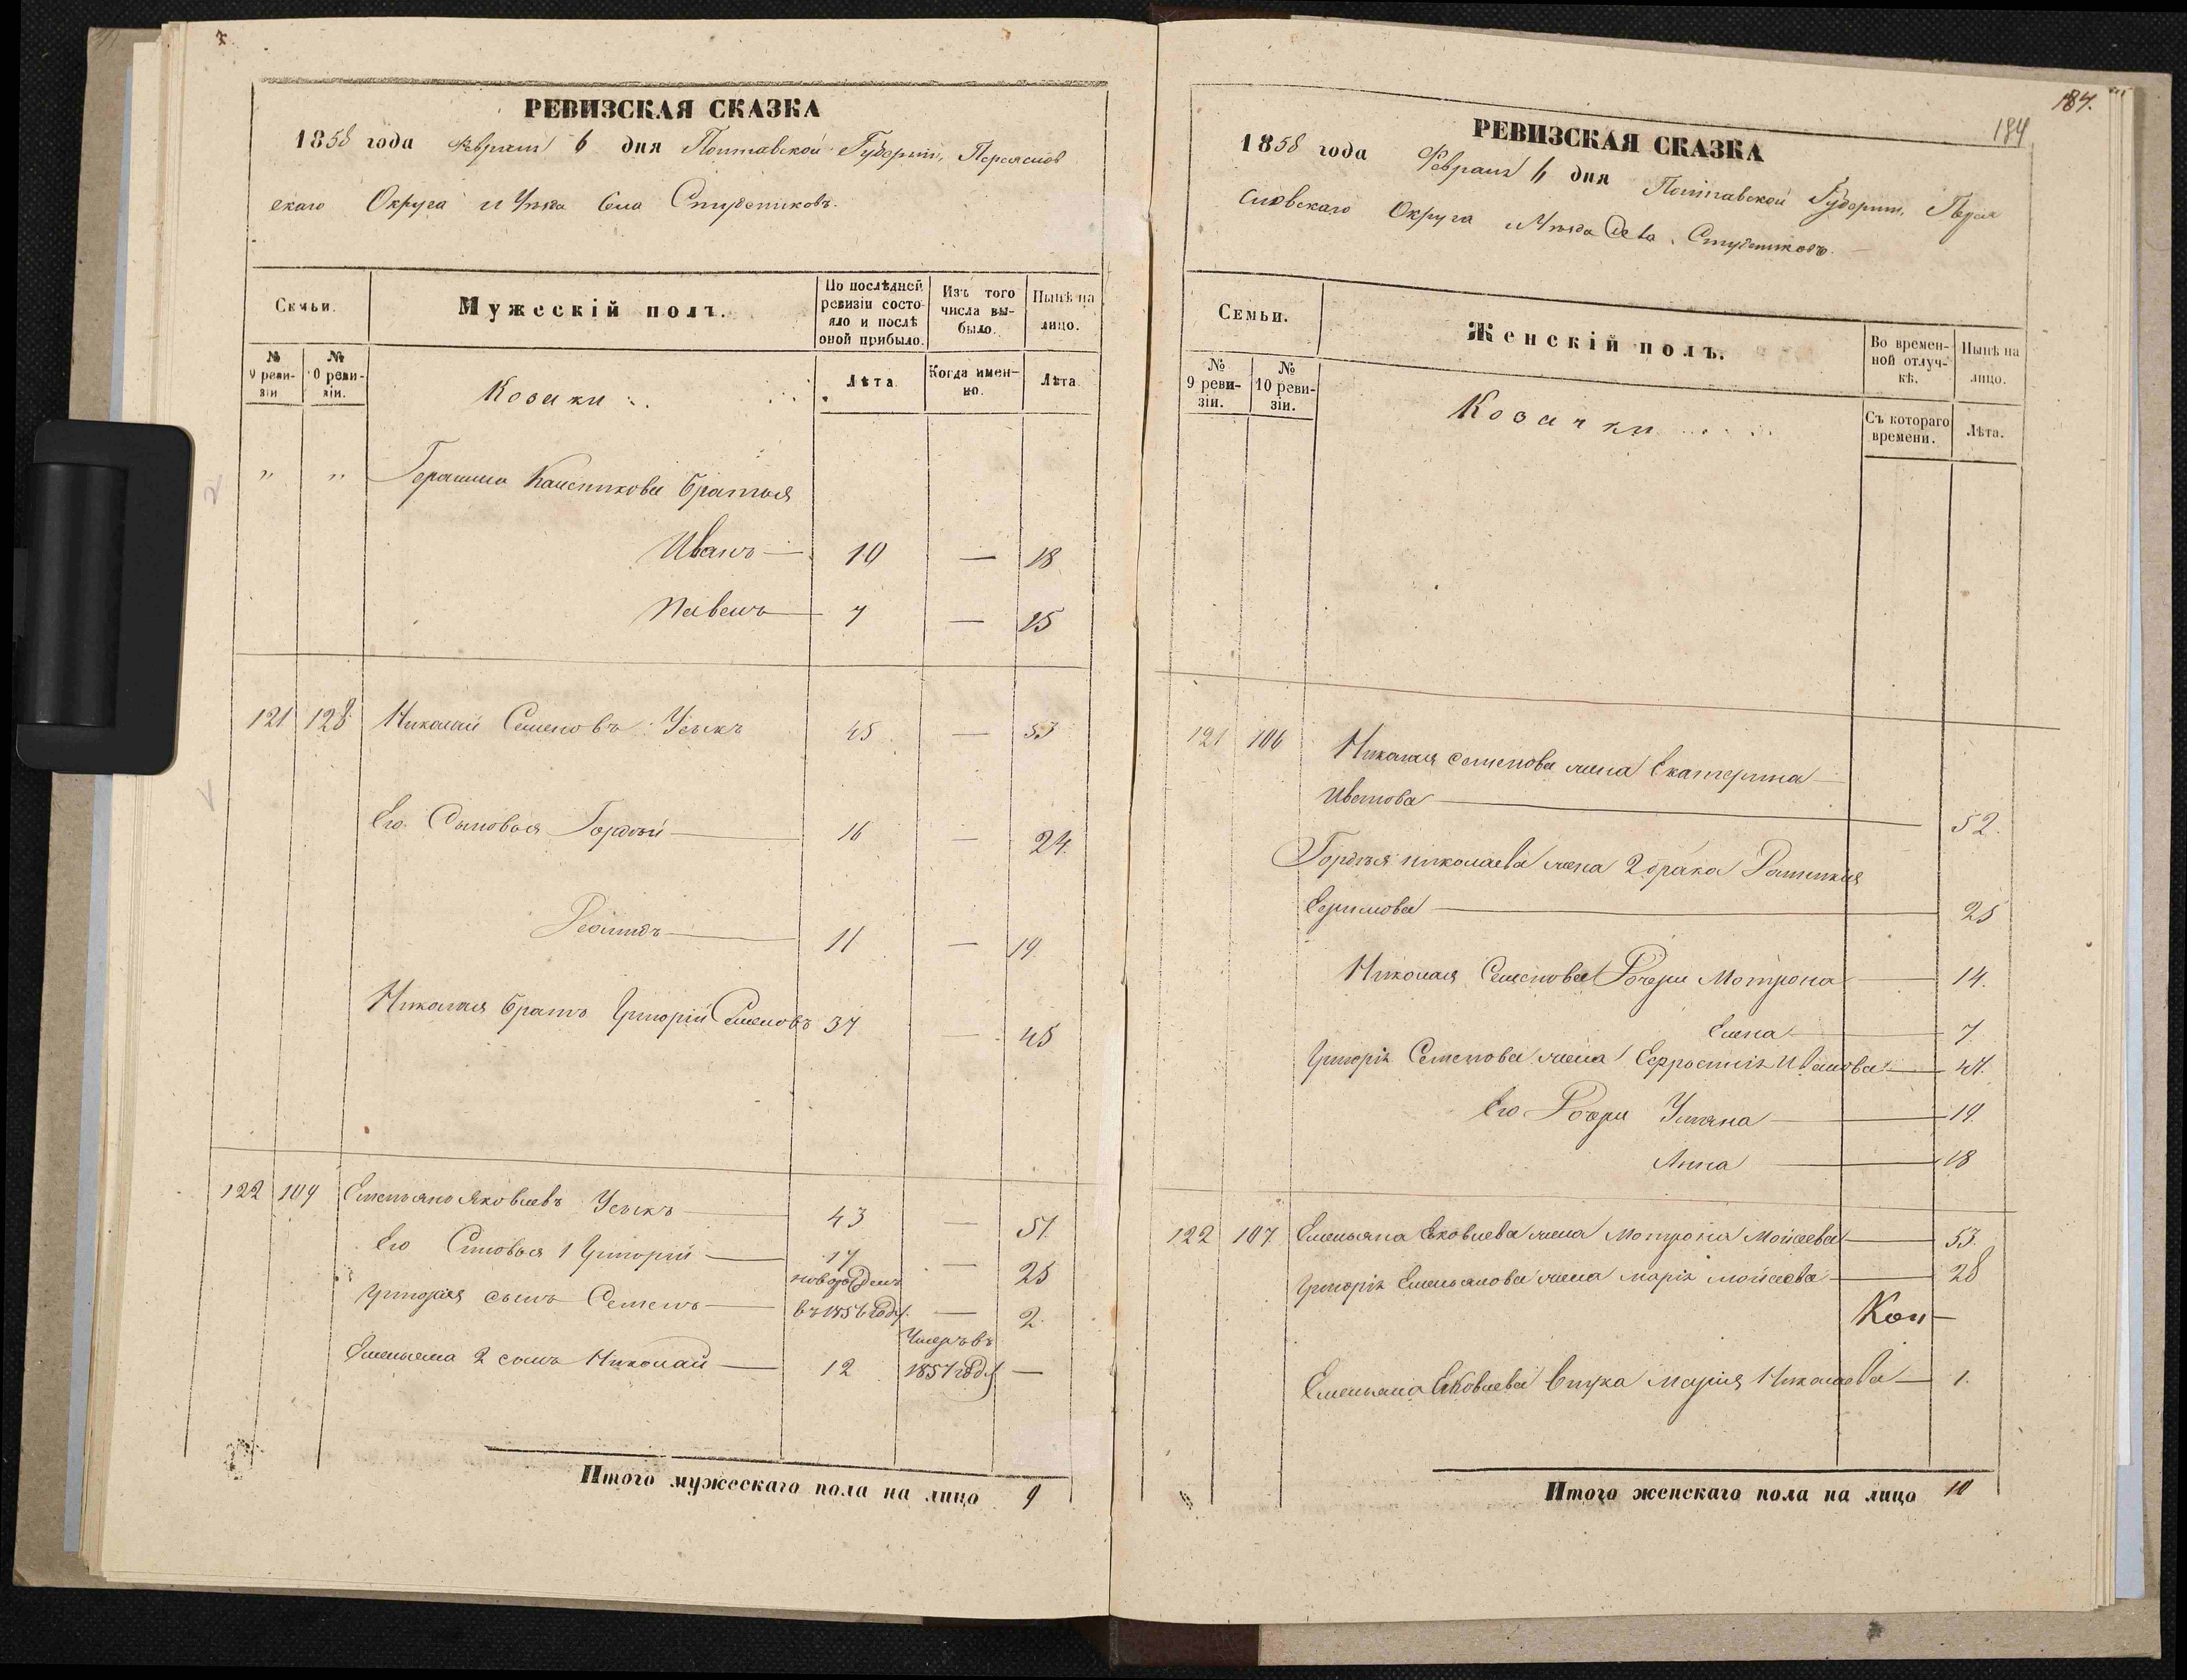 РЕВИЗСКАЯ СКАЗКА
1858 года Февраля 6 дня Полтавской Губерніи, Переяслов
скаго Округа и Уѣзда Села Студениковъ.
Семьи.
Мужескій полъ.
По послѣдней ревизіи состояло и послѣ оной прибыло.
Изъ того числа выбыло.
Нынѣ на лицо.
№ 9 ревизіи
№ 10 ревизіи.
Козаки
Лѣта
Когда именно.
Лѣта.
" " Герасима братья
Иванъ — 10 — 18
Павелъ — 7 — 15
121 128 Николай Семеновъ Усыкъ 45 — 53
Его Сыновья Гордѣй — 16 — 24.
Леонидъ — 11 — 19
Николая братъ Григорій Семеновъ 37 — 45
122 109 Емельянъ Яковлевъ Усыкъ — 43 — 51.
Его Сыновья 1 Григорій — 17 — 25
Григорія сынъ Семенъ — новорожденъ въ 1856 году. — 2.
Емельяна 2 сынъ Николай — 12 Умеръ въ 1857 году —
Итого мужескаго пола на лицо 9
187.
184
РЕВИЗСКАЯ СКАЗКА
1858 года Февраля 6 дня Полтавской Губерніи, Перея
словскаго Округа и Уѣзда Села Студениковъ.
Семьи.
Женскій полъ.
Во временной отлучкѣ.
Нынѣ на лицо.
№ 9 ревизіи.
№ 10 ревизіи.
Козачки
Съ котораго времени.
Лѣта.
121 106 Николая Семенова жена Екатерина
Иванова — 52.
Гордѣя Николаева жена 2 брака
— 25
Николая Семенова Дочери Мотрона — 14.
Елена — 7.
Григорія Семенова жена Ефросинія Иванова — 41.
Его Дочери Ульяна — 19.
Анна — 18
122 107 Емельяна Яковлева жена Мотрона Моисеева — 53.
Григорія Емельянова жена Марія Моисеева — 28
Емельяна Яковлева внука Марія Николаева — 1.
Итого женскаго пола на лицо 10